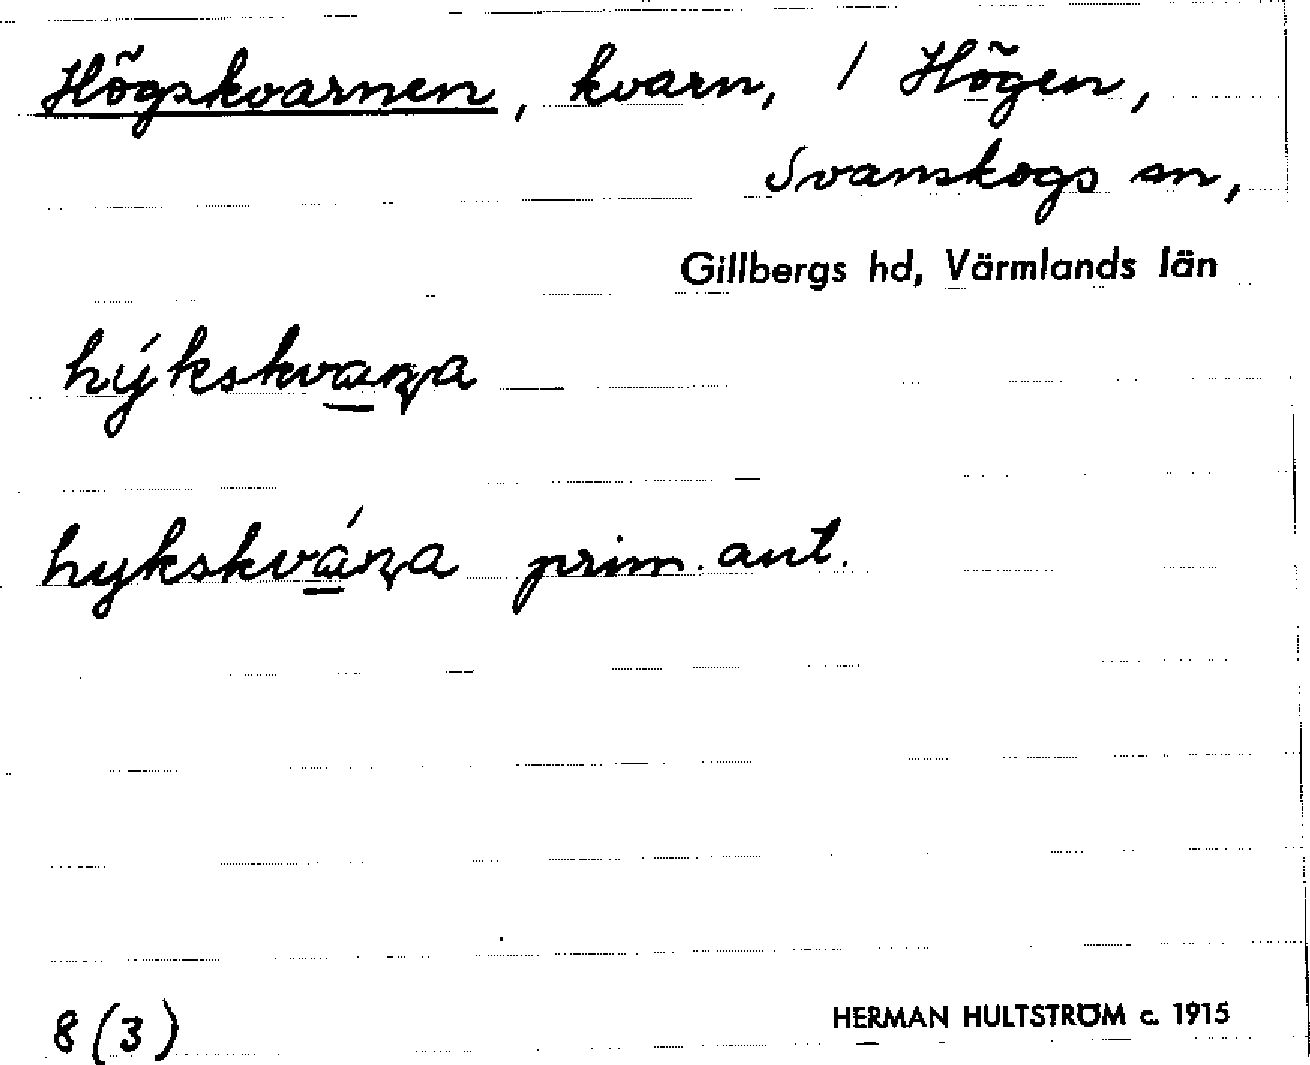 Högskvarnen, kvarn, / Högen,
Svanskogs sn,
Gillbergs hd, Värmlands län
hýkskvaɳa
hykskváɳa prim. ant.
8 (3)
HERMAN HULTSTRÖM c. 1915